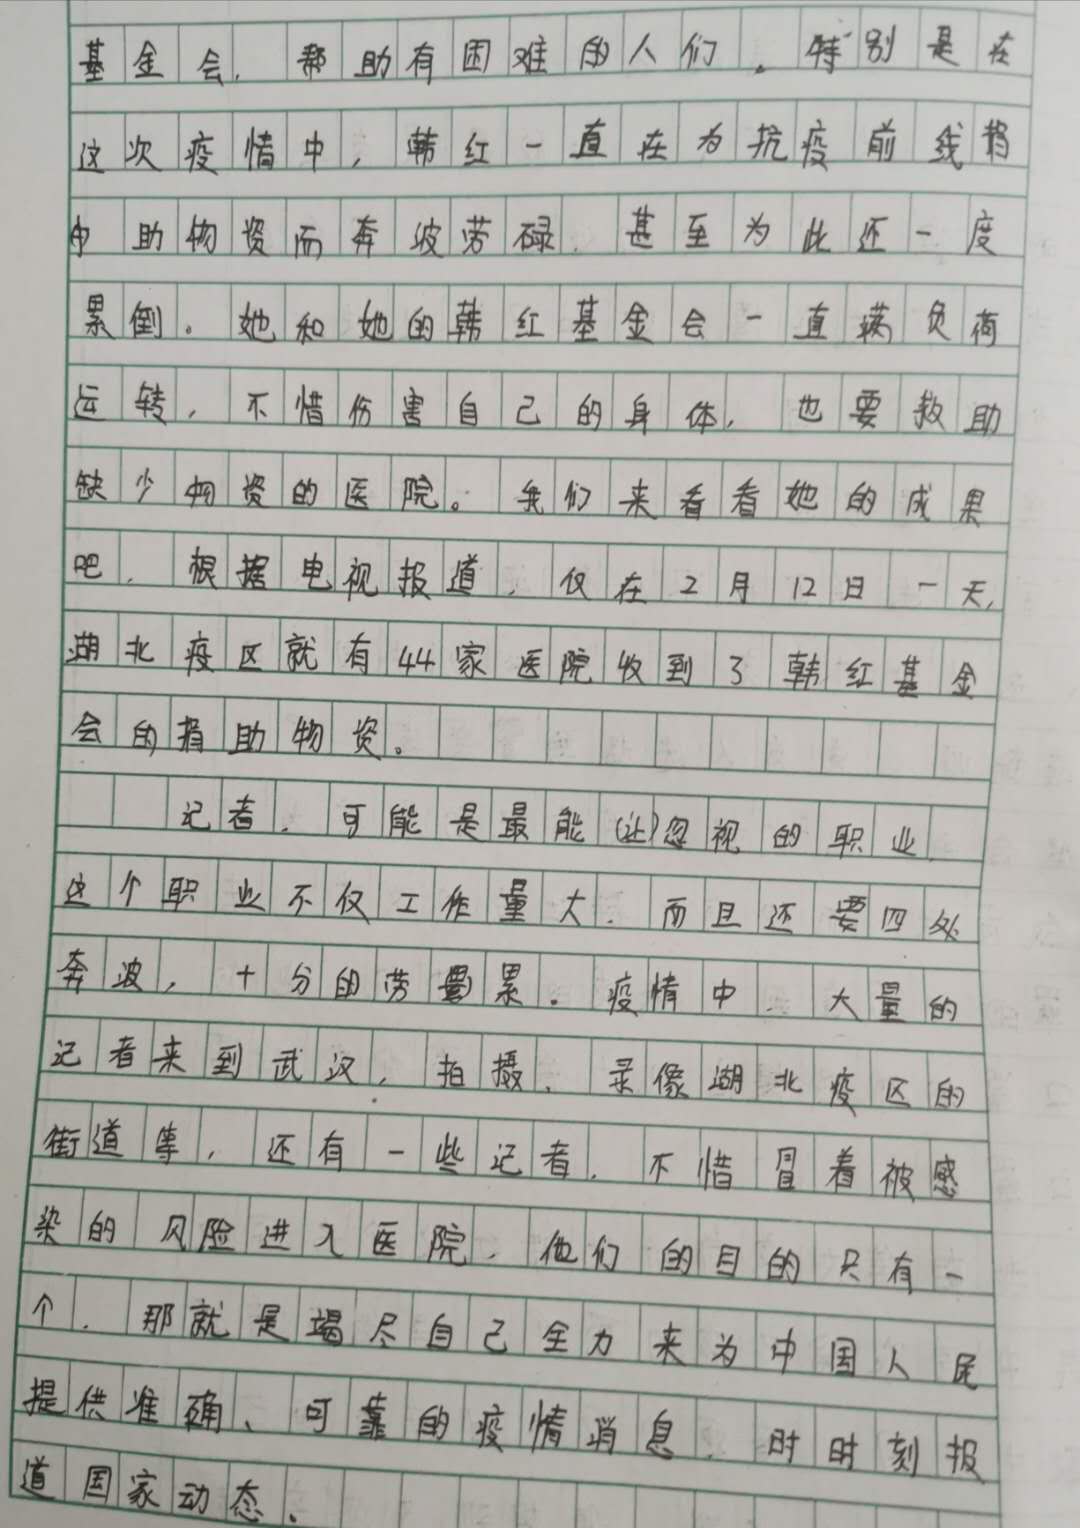 基金会，帮助有困难的人们。特别是在
这次疫情中，韩红一直在为抗疫前线捐
助物资而奔波劳碌，甚至为此还一度
累倒。她和她的韩红基金会一直满负荷
运转，不惜伤害自己的身体，也要救助
缺少物资的医院。我们来看看她的成果
吧，根据电视报道，仅在2月12日一天，
湖北疫区就有44家医院收到了韩红基金
会的捐助物资。
记者，可能是最能(让)忽视的职业，
这个职业不仅工作量大，而且还要四处
奔波，十分的劳累。疫情中，大量的
记者来到武汉，拍摄、录像湖北疫区的
街道等，还有一些记者，不惜冒着被感
染的风险进入医院，他们的目的只有一
个，那就是竭尽自己全力来为中国人民
提供准确、可靠的疫情消息，时时刻报
道国家动态。